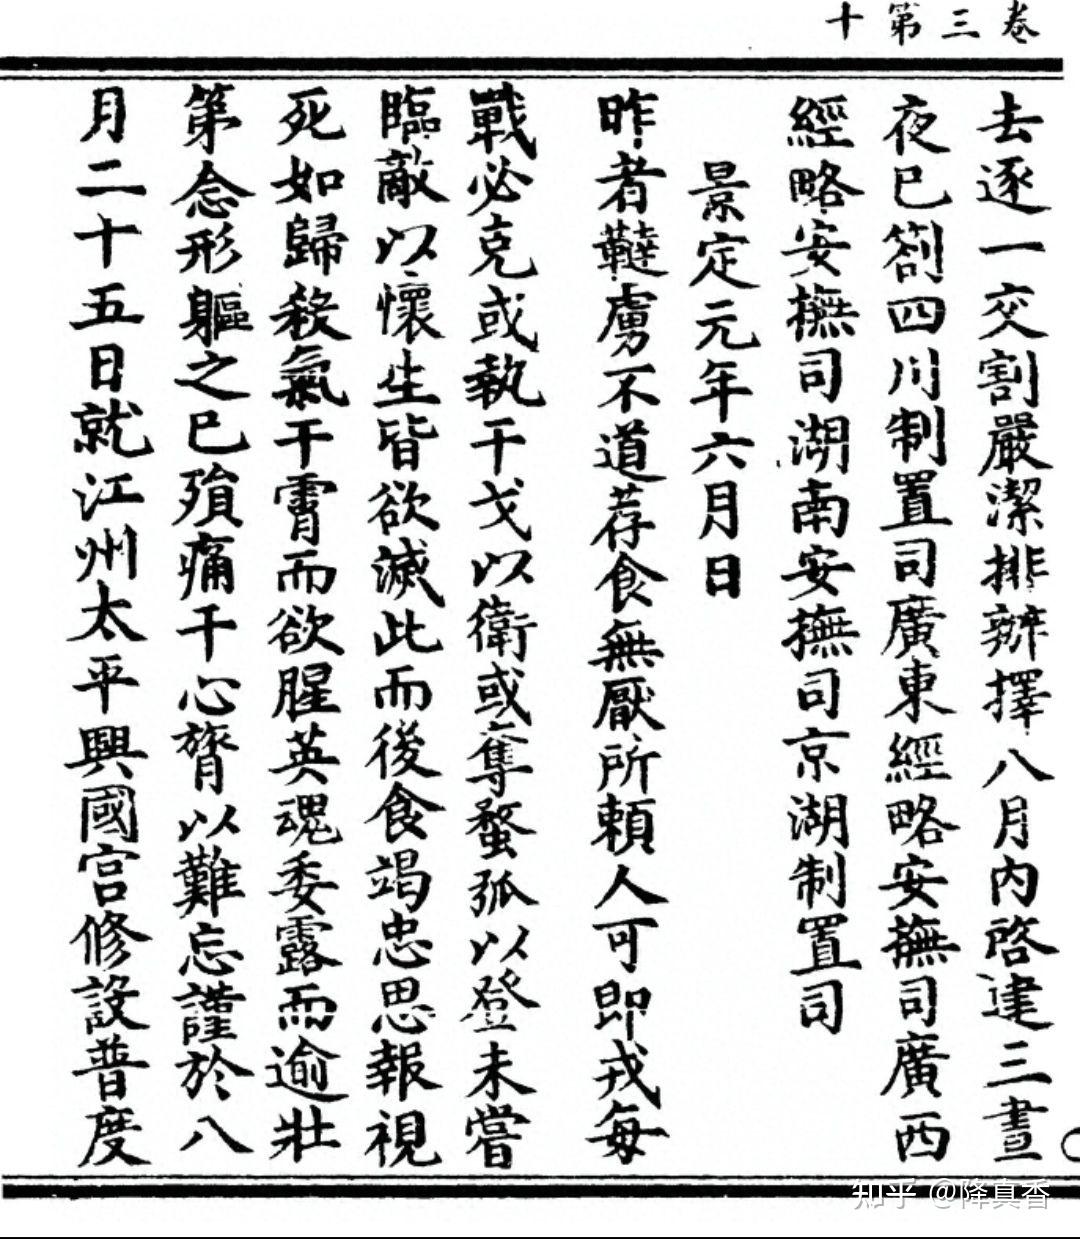 卷三第十
去逐一交割嚴潔排辦擇八月內啓建三晝
夜已劄四川制置司廣東經略安撫司廣西
經略安撫司湖南安撫司京湖制置司
景定元年六月日
昨者韃虜不道荐食無厭所賴人可即戎每
戰必克或執干戈以衛或奪蝥弧以登未嘗
臨敵以懷生皆欲滅此而後食竭忠思報視
死如歸殺氣干霄而欲腥英魂委露而逾壯
第念形軀之已殞痛千心膂以難忘謹於八
月二十五日就江州太平興國宮修設普度
知乎 @降真香